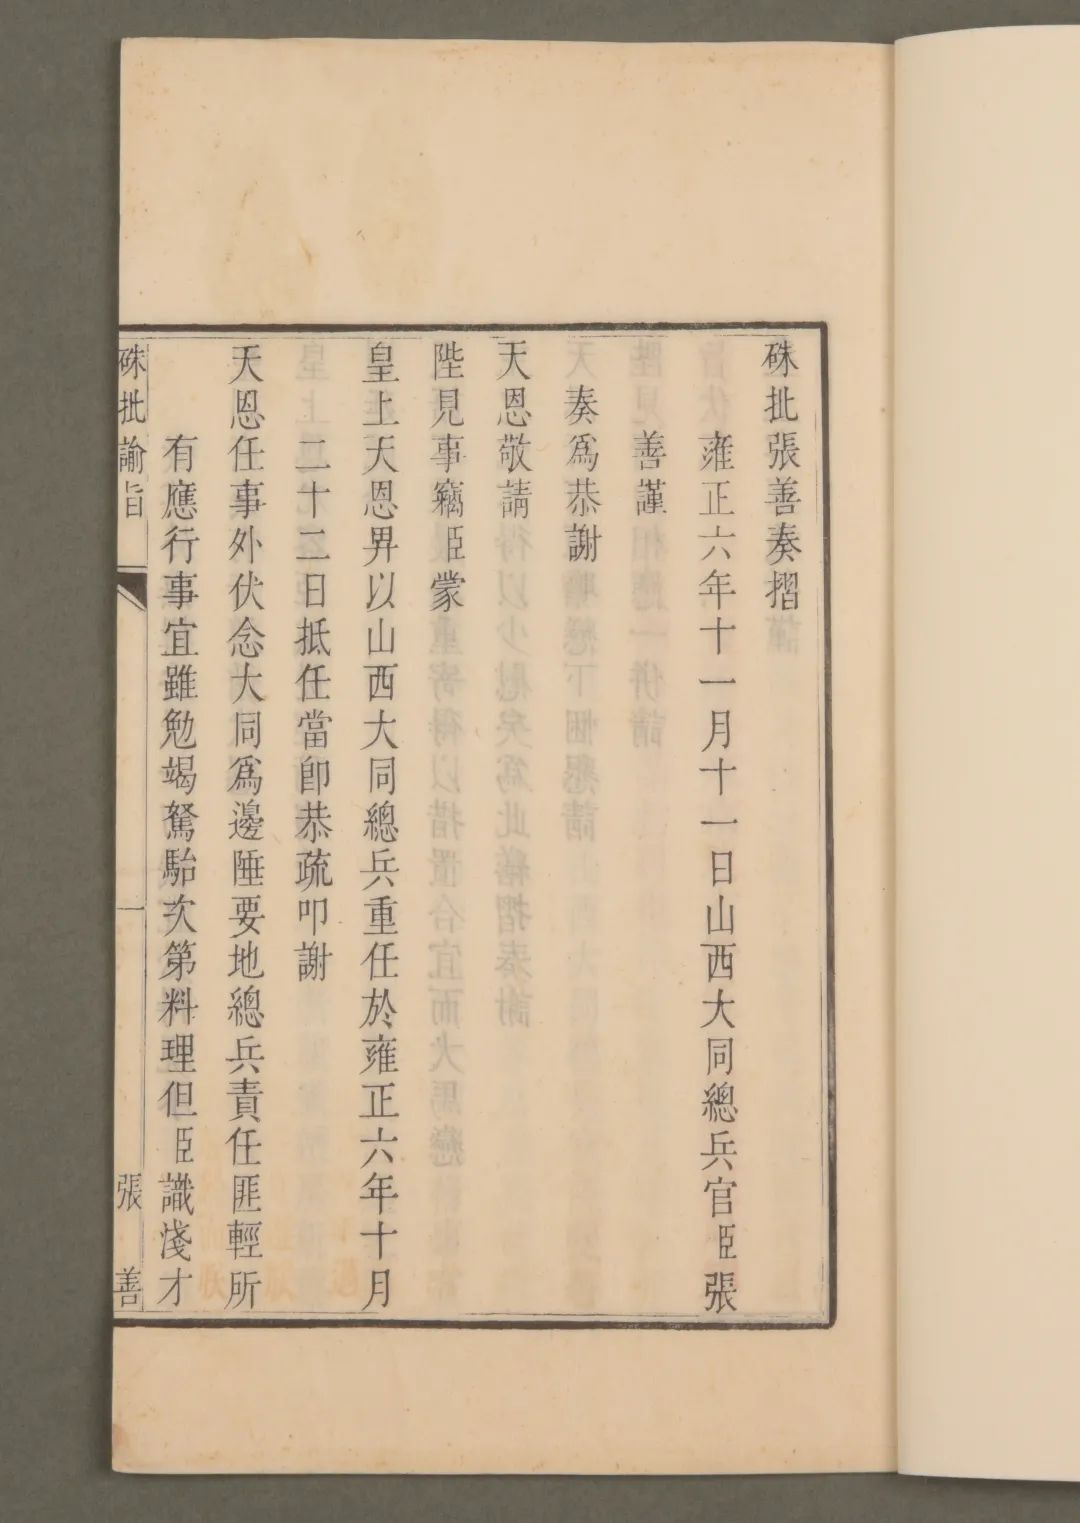 硃批張善奏摺
雍正六年十一月十一日山西大同總兵官臣張
善謹
奏爲恭謝
天恩敬請
陛見事竊臣蒙
皇上天恩畀以山西大同總兵重任於雍正六年十月
二十二日抵任當卽恭疏叩謝
天恩任事外伏念大同爲邊陲要地總兵責任匪輕所
有應行事宜雖勉竭駑駘次第料理但臣識淺才
硃批諭旨
一
張善